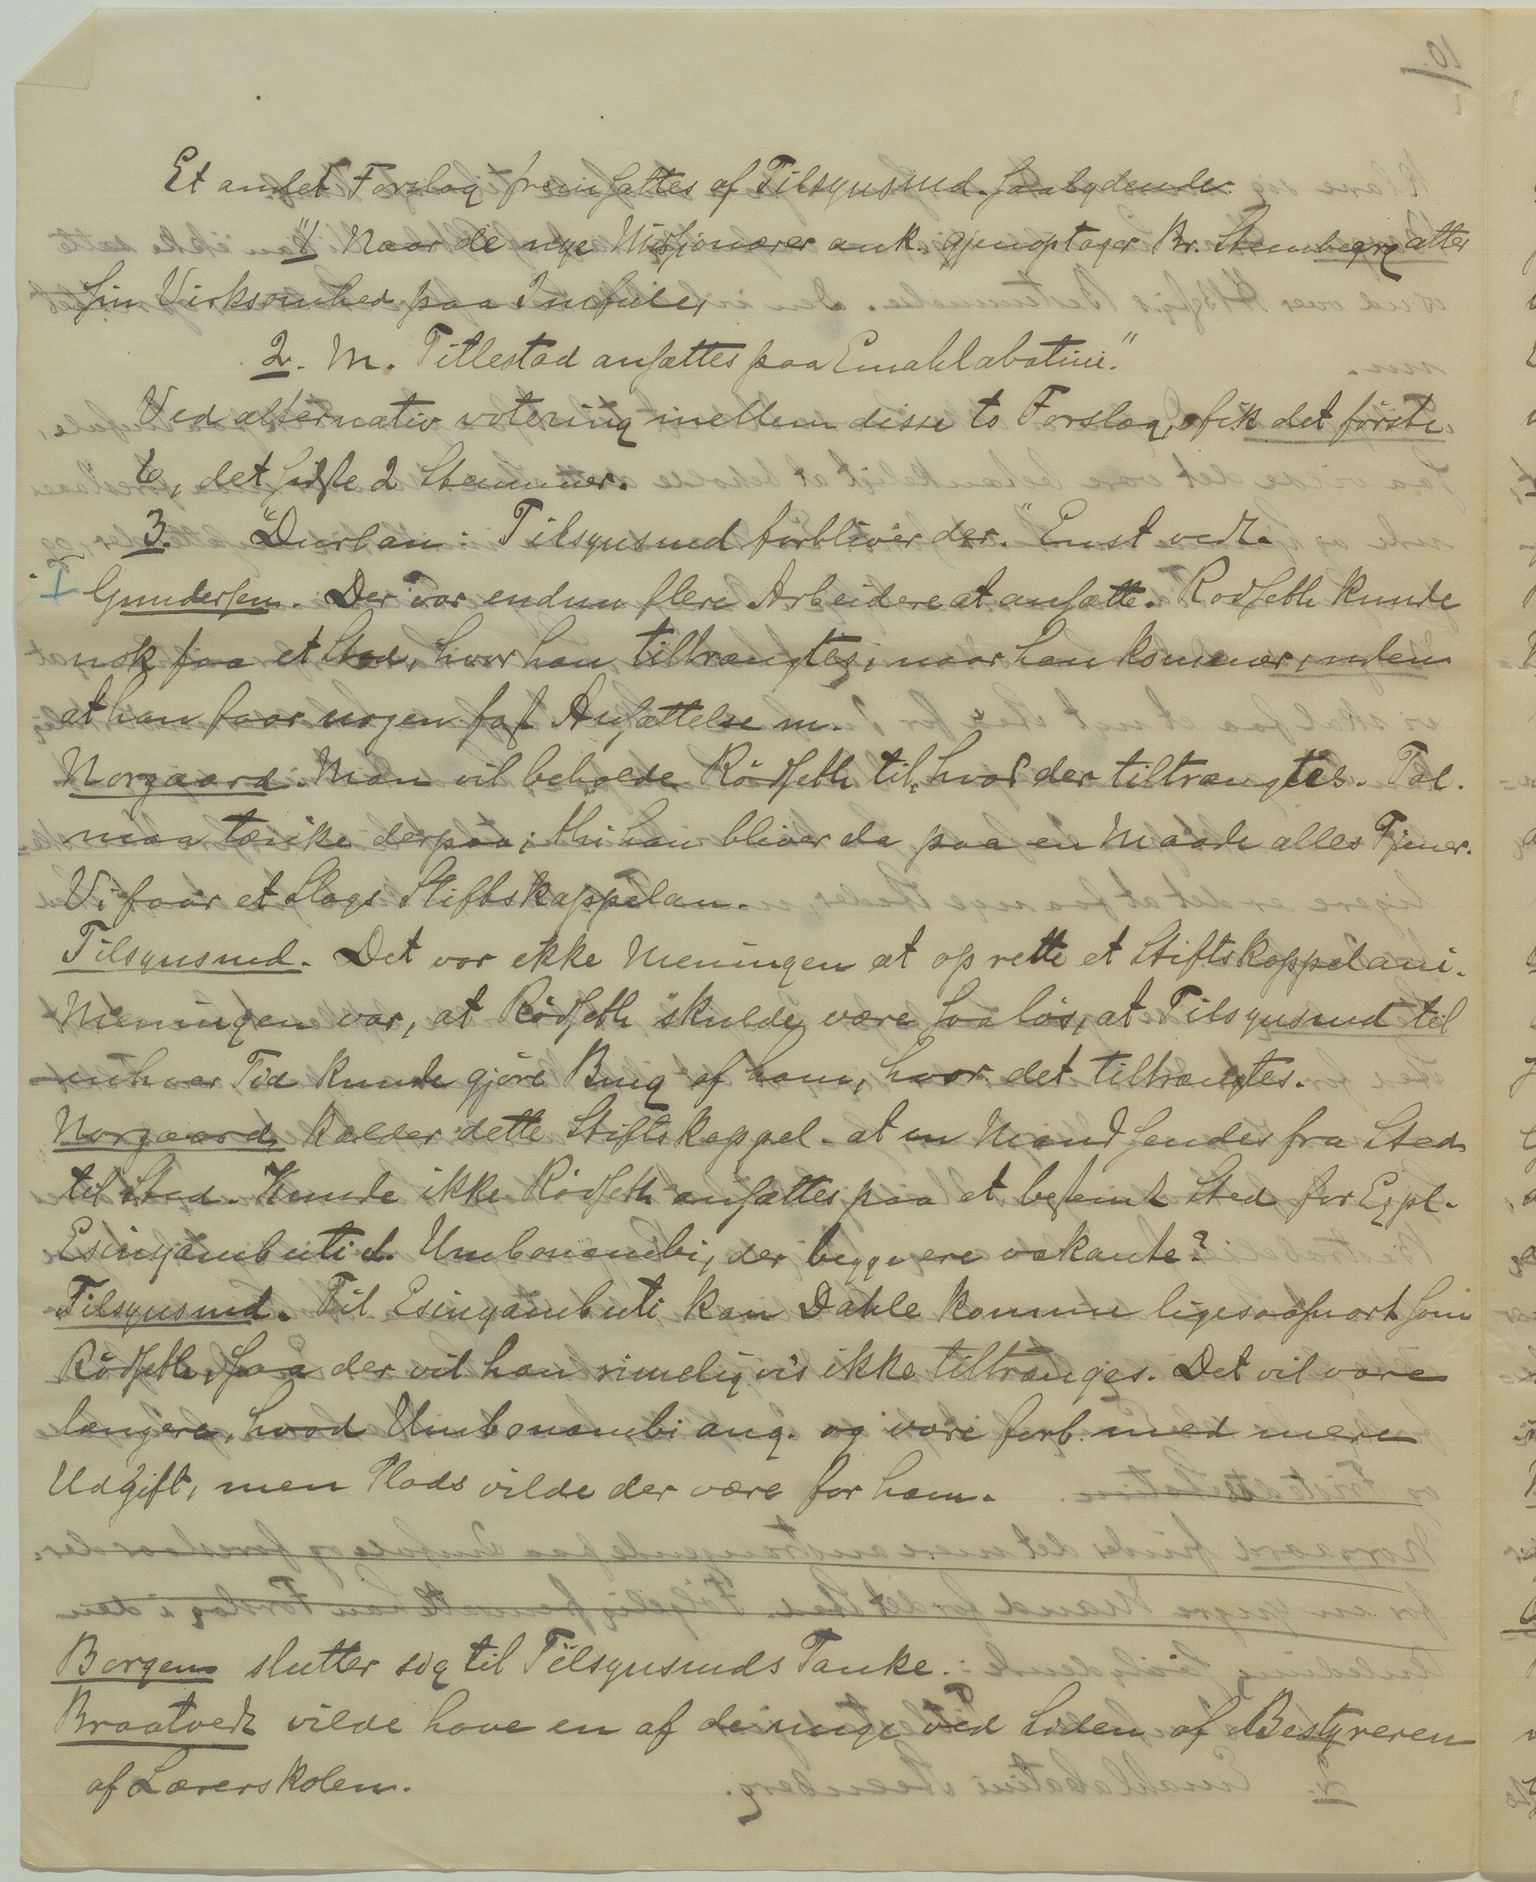 Et andet Forslag fremsattes af Tilsynsmd. saalydende:
"1 Naar de nye Missionærer ank. gjenoptager Br. Stenberg atter
sin Virksomhed paa Inhfule,
2. M. Titlestad ansættes paa Emahlabatini."
Ved alternativ votering mellem disse to Forslag, fik det første
6, det sidste 2 Stemmer.
3. "Durban: Tilsynsmd forbliver der." Enst vedt.
Gundersen. Der var endnu flere Arbeidere at ansætte. Rödseth kunde
nok faa et Sted, hvor han tiltrængtes, naar han kommer, uden
at han faar nogen fast Ansættelse nu.
Norgaard. Man vil beholde Rödseth til, hvor der tiltrængtes. Tal.
maa tænke derpaa; thi han bliver da paa en Maade alles Tjener.
Vi faar et Slags Stiftskappelan.
Tilsynsmd. Det var ikke Meningen at oprette et Stiftskappelani.
Meningen var, at Rödseth skulde være saa løs, at Tilsynsmd til
enhver Tid kunde gjöre Brug af ham, hvor det tiltrængtes.
Norgaard kalder dette Stiftskappel. at en Mand sendes fra Sted
til Sted. Kunde ikke Rödseth ansættes paa et bestemt Sted for Expl.
Esinyambuti el. Umbonambi, der begge vare vakante?
Tilsynsmd. Til Esinyambuti kan Dahle komme ligesaasnart som
Rödseth, saa der vil han rimeligvis ikke tiltrænges. Det vil vare
længere, hvad Umbonambi ang. og være forb. med mere
Udgift, men Plads vilde der være for ham.
Borgen slutter sig til Tilsynsmds Tanke.
Braatvedt vilde have en af de unge ved Siden af Bestyreren
af Lærerskolen.